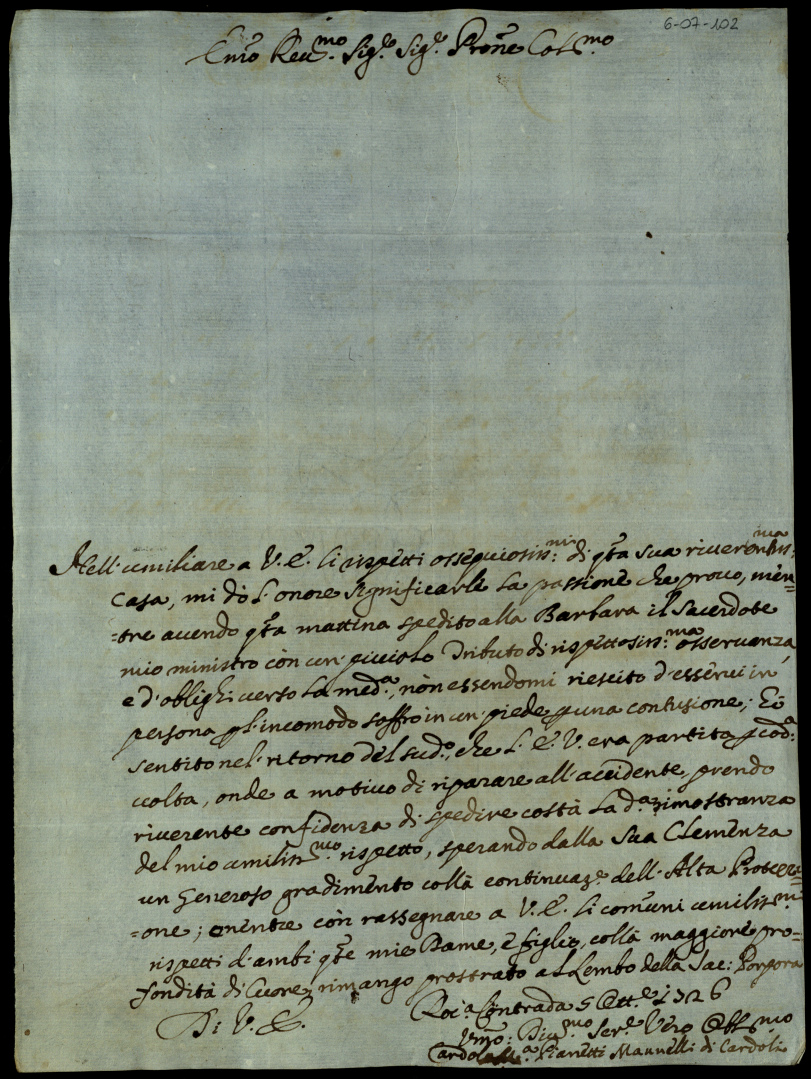 6-07-102
Em̃o Reu.mo Sig.re Sig.re Prone Col.mo
Nell'umiliare a V. E. li rispetti ossequiosiss:mi di q̃ta sua riuerentiss:ma
Casa, mi dò l'onore significarle la passione che prouo, men=
=tre auendo q̃ta mattina spedito alla Barbara il Sacerdote
mio ministro con un picciolo Tributo di rispettosiss:ma osseruanza,
e d'oblighi uerso la med.a, nòn essendomi riescito d'esserui in
persona p l'incomodo soffro in un piede p una contusione; Ed
sentito nel ritorno del sud.o, che l'E. V. era partita p cod.a
uolta, onde a motiuo di riparare all'accidente, prendo
riuerente confidenza di spedire costà la d.a rimostranza
del mio umiliss.mo rispetto, sperando dalla Sua Clemenza
un Generoso gradimento collà continuaz.e dell'Alta Protezzi=
=one; mentre còn rassegnare a V. E. li comuni umiliss.mi
rispetti d'ambi q̃te mie Dame, e figlio, collà maggiore pro=
fondità di Cuore rimango prostrato al Lembo della Sac: Porpora
Di V. E.
Roc.a Contrada 5 Ott.e 1726
Um̃o: Diu.mo Ser.e Vero Obb.mo
Pianetti Mannelli di Cardoli